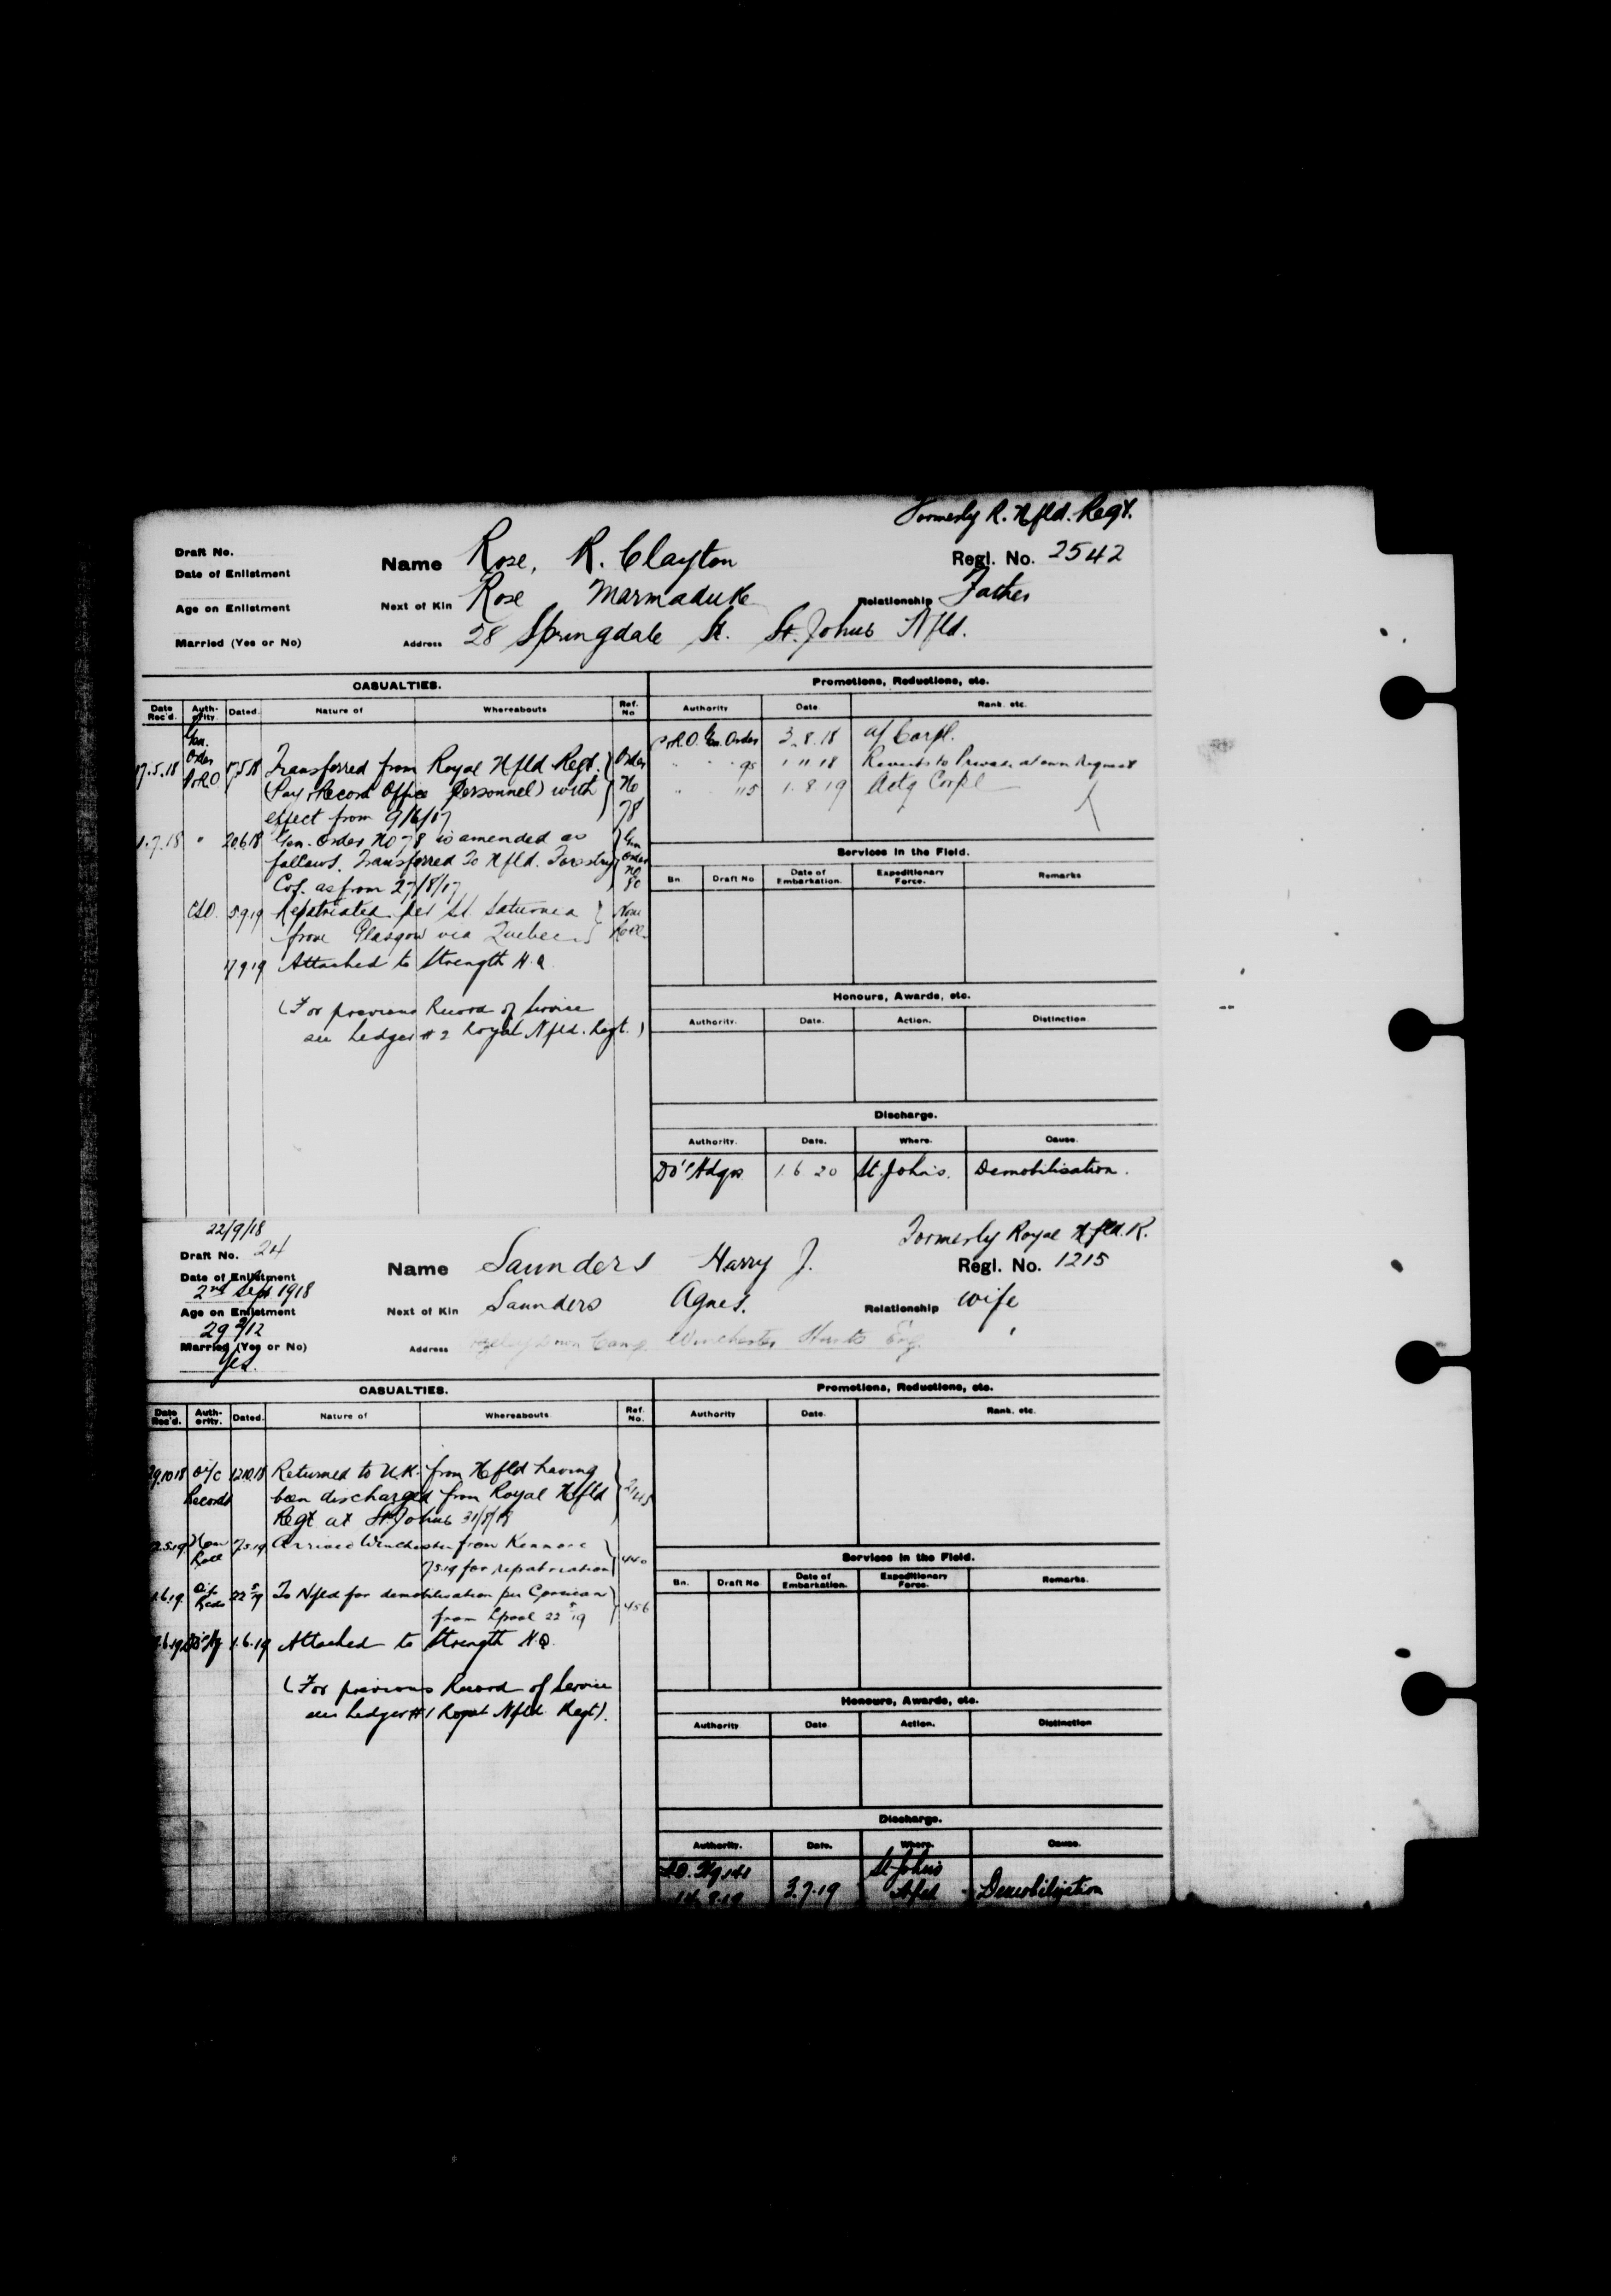 Formerly R. Nfld. Regt.
Draft No.
Name Rose, R. Clayton
Regl. No. 2542
Date of Enlistment
Age on Enlistment
Next of Kin Rose Marmaduke
Relationship Father
Married (Yes or No)
Address 28 Springdale St. St. Johns Nfld.
CASUALTIES.
Promotions, Reductions, etc.
Date Rec'd. Auth-ority. Dated. Nature of Whereabouts Ref. No
Authority Date Rank. etc.
P&R.O. Gen. Order 3.8.18 a/ Corpl.
" " " 95 1 11 18 Reverts to Private at own Request
" " 115 1.8.19 Actg Corpl
Gen. Order P&R.O
17.5.18 17.5.18 Transferred from Royal Nfld Regt. Order
(Pay & Record Office Personnel) with No
effect from 9/6/17 78
1.7.18 " 20.6.18 Gen. Order No 78 is amended as Gen
follows. Transferred To Nfld. Forestry Order No
Cos. as from 27/8/17 80
CSO. 5 9 19 Repatriated per St. Saturnia Nom
from Glasgow via Quebec Roll
17 9 19 Attached to Strength H.Q.
(For previous Record of Service
see Ledger # 2 Royal Nfld. Regt.)
Services in the Field.
Bn. Draft No Date of Embarkation. Expeditionary Force. Remarks
Honours, Awards, etc.
Authority. Date. Action. Distinction.
Discharge.
Authority. Date. Where. Cause.
Hdqrs 1 6 20 St. John's. Demobilisation.
22/9/18
Formerly Royal Nfld. R.
Draft No. 24
Name Saunders Harry J.
Regl. No. 1215
Date of Enlistment
2nd Sept 1918
Age on Enlistment
29 2/12
Next of Kin Saunders Agnes.
Relationship wife
Married (Yes or No)
Yes.
Address Camp Winchester Hants Eng.
CASUALTIES.
Promotions, Reductions, etc.
Date Rec'd. Auth-ority. Dated. Nature of Whereabouts Ref. No.
Authority Date. Rank. etc.
29.10.18 O i/c Records 12.10.18 Returned to U.K. from Nfld having
been discharged from Royal Nfld
Regt at St. Johns 31/8/18
Nom Roll 7.5.19 Arrived Winchester from Kenmore
7.5.19 for repatriation 440
22 5 19 To Nfld for demobilisation per Corsican
from Lpool 22 5 19 456
1.6.19 Attached to Strength H.Q.
(For previous Record of Service
see Ledger # 1 Royal Nfld Regt).
Services in the Field.
Bn. Draft No Date of Embarkation. Expeditionary Force. Remarks.
Honours, Awards, etc.
Authority Date Action. Distinction
Discharge.
Authority. Date. Where. Cause.
3.7.19 St. John's Nfld Demobilization